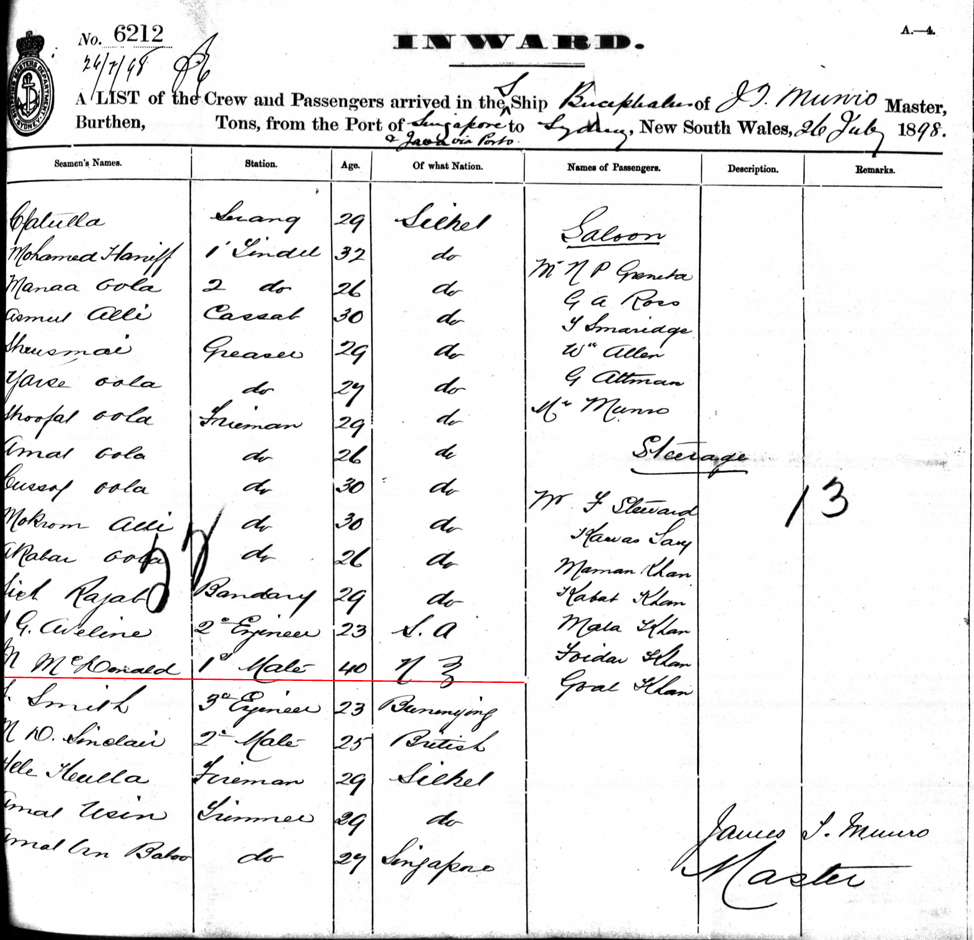 No. 6212
INWARD.
A.—4.
26/7/98
A LIST of the Crew and Passengers arrived in the S Ship Bucephalus of J. S. Munro Master,
Burthen, Tons, from the Port of Singapore to Sydney, New South Wales, 26 July 1898.
& Java via Ports
Seamen's Names. Station. Age. Of what Nation. Names of Passengers. Description. Remarks.
Serang 29 Silhet
Saloon
Mohamed Haniff 1 Tindel 32 do
Mr N P
Manaa oola 2 do 26 do
G A Ross
asmut Alli Cassab 30 do
T Smaridge
Greaser 29 do
Wm Allen
oola do 27 do
G Altman
oola Fireman 29 do
Mr Munro
amal oola do 26 do
Steerage
oola do 30 do
Mr F Steward
Mokrom Alli do 30 do
13
akabar oola do 26 do
Maman Khan
Rajab Bandary 29 do
Kabat Khan
G. Aveline 2d Engineer 23 S. A
Mala Khan
McDonald 1st Mate 40 N Z
Khan
Goal Khan
Smith 3d Engineer 23 Buninyong
N D. Sinclair 2d Mate 25 British
Fireman 29 Silhet
amal Usin Trimmer 29 do
James S. Munro
amat bn Baboo do 27 Singapore
Master